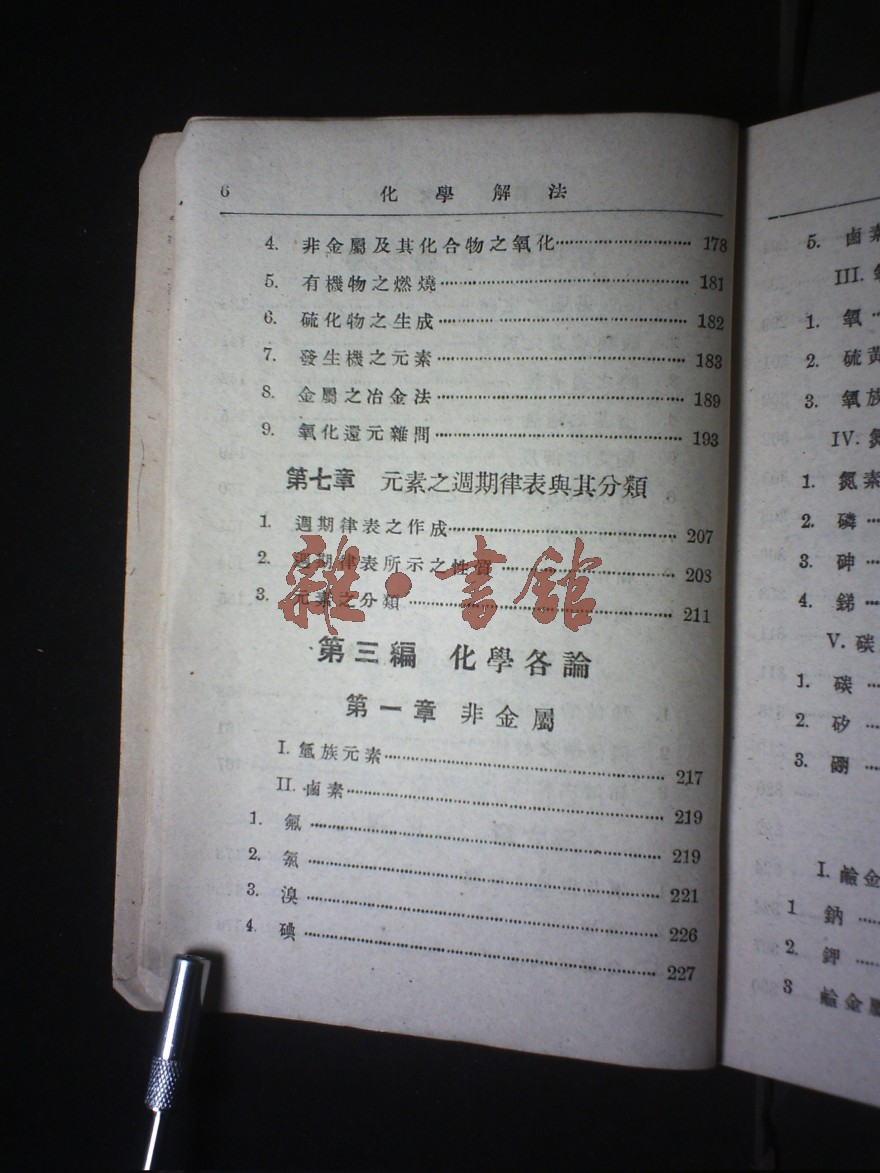 6 化學解法
4. 非金屬及其化合物之氧化 178
5. 有機物之燃燒 181
6. 硫化物之生成 182
7. 發生機之元素 183
8. 金屬之冶金法 189
9. 氧化還元雜問 193
第七章 元素之週期律表與其分類
1. 週期律表之作成 207
2. 週期律表所示之性質 208
3. 元素之分類 211
雜·書館
第三編 化學各論
第一章 非金屬
I. 氫族元素 217
II. 鹵素 219
1. 氟 219
2. 氯 221
3. 溴 226
4. 碘 227
5. 鹵素
III.
1. 氧
2. 硫黃
3. 氧族
IV. 氮
1. 氮素
2. 磷
3. 砷
4. 銻
V. 碳
1. 碳
2. 矽
3. 硼
I. 鹼金
1 鈉
2. 鉀
3 鹼金屬